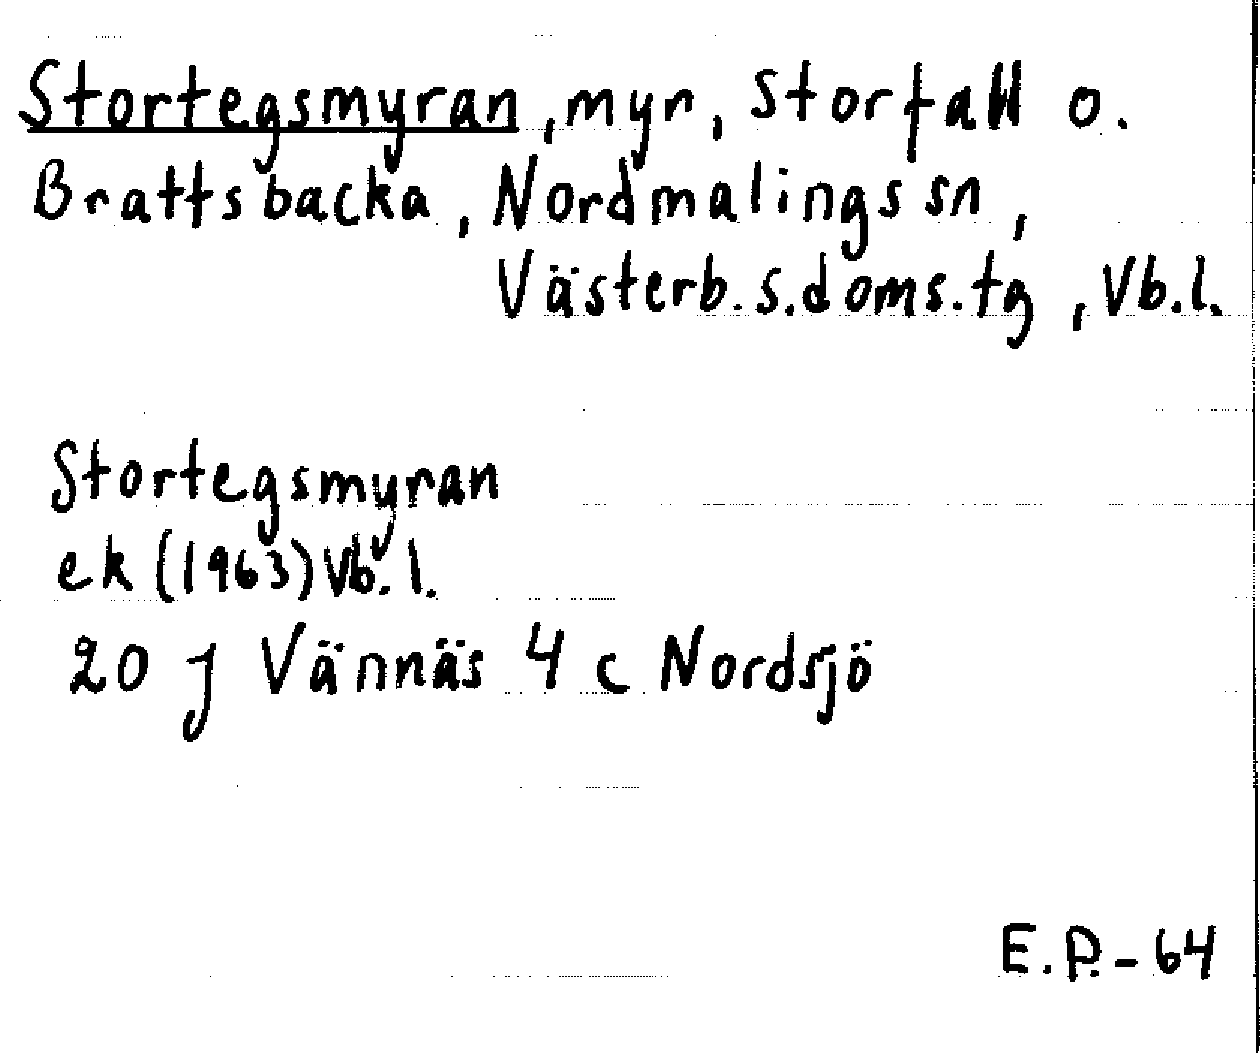 Stortegsmyran, myr, Storfall o.
Brattsbacka, Nordmalings sn,
Västerb.s.doms.tg, Vb.l.
Stortegsmyran
ek (1963) Vb.l.
20 J Vännäs 4 c Nordsjö
E.P.-64